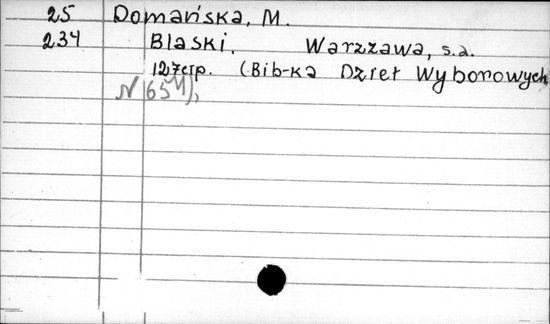 25 Domańska, M.
234 Blaski. Warzzawa, s.a.
127стр. (Bib-ka Dzieł Wyborowych
N 65